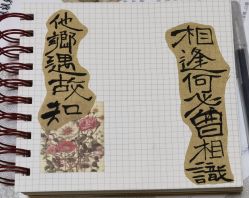 相逢何必曾相識
他鄉遇故知